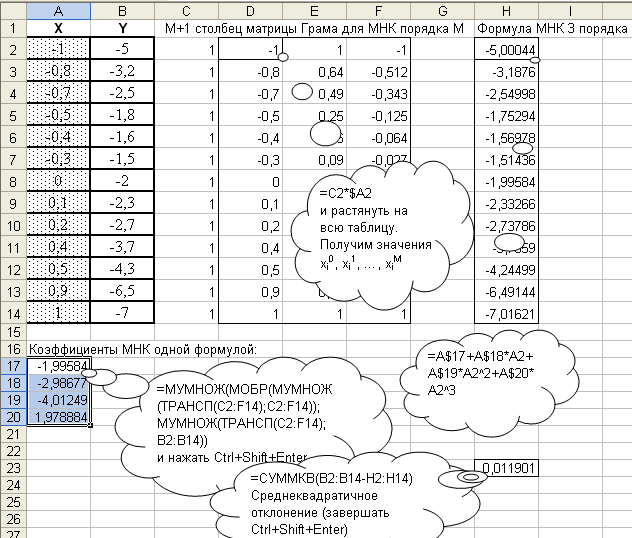 A B C D E F G H I
1 X Y M+1 столбец матрицы Грама для МНК порядка M Формула МНК 3 порядка
2 -1 -5 1 -1 1 -1 -5,00044
3 -0,8 -3,2 1 -0,8 0,64 -0,512 -3,1876
4 -0,7 -2,5 1 -0,7 0,49 -0,343 -2,54998
5 -0,5 -1,8 1 -0,5 0,25 -0,125 -1,75294
6 -0,4 -1,6 1 -0,4 -0,064 -1,56978
7 -0,3 -1,5 1 -0,3 0,09 -0,027 -1,51436
8 0 -2 1 0 -1,99584
9 0,1 -2,3 1 0,1 -2,33266
10 0,2 -2,7 1 0,2 -2,73786
11 0,4 -3,7 1 0,4
12 0,5 -4,3 1 0,5 -4,24499
13 0,9 -6,5 1 0,9 -6,49144
14 1 -7 1 1 1 1 -7,01621
=C2*$A2
и растянуть на
всю таблицу.
Получим значения
xᵢ⁰, xᵢ¹, ... , xᵢᴹ
15
16 Коэффициенты МНК одной формулой:
17 -1,99584
18 -2,98677
19 -4,01249
20 1,978884
=A$17+A$18*A2+
A$19*A2^2+A$20*
A2^3
=МУМНОЖ(МОБР(МУМНОЖ
(ТРАНСП(C2:F14);C2:F14));
МУМНОЖ(ТРАНСП(C2:F14);
B2:B14))
и нажать Ctrl+Shift+Enter
21
22
23 0,011901
24
25
26
27
=СУММКВ(B2:B14-H2:H14)
Среднеквадратичное
отклонение (завершать
Ctrl+Shift+Enter)